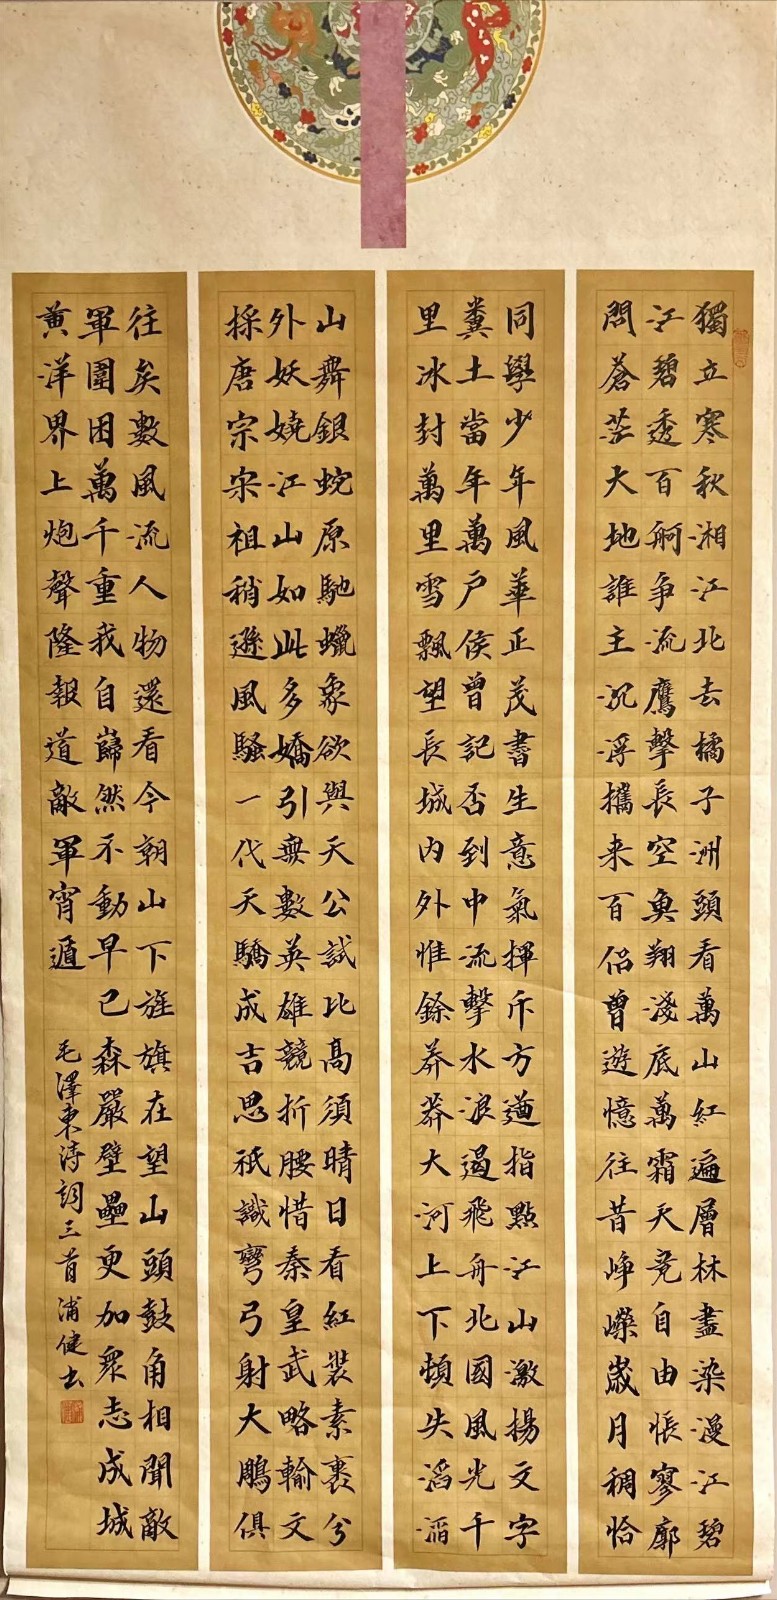 獨立寒秋湘江北去橘子洲頭看萬山紅遍層林盡染漫江碧
江碧透百舸争流鷹擊長空魚翔淺底萬霜天竞自由悵寥廓
問蒼茫大地誰主沉浮攜来百侣曾遊憶往昔崢嶸歲月稠恰
同學少年風華正茂書生意氣揮斥方遒指點江山激揚文字
糞土當年萬户侯曾記否到中流擊水浪遏飛舟北國風光千
里冰封萬里雪飄望長城内外惟餘莽莽大河上下頓失滔滔
山舞銀蛇原馳蠟象欲與天公試比高須晴日看紅裝素裹兮
外妖嬈江山如此多嬌引無數英雄競折腰惜秦皇武略輸文
採唐宗宋祖稍遜風騷一代天驕成吉思祇識彎弓射大鵰俱
往矣數風流人物還看今朝山下旌旗在望山頭鼓角相聞敵
軍圍困萬千重我自巋然不動早已森嚴壁壘更加眾志成城
黄洋界上炮聲隆報道敵軍宵遁 毛澤東詩詞三首 浦健书